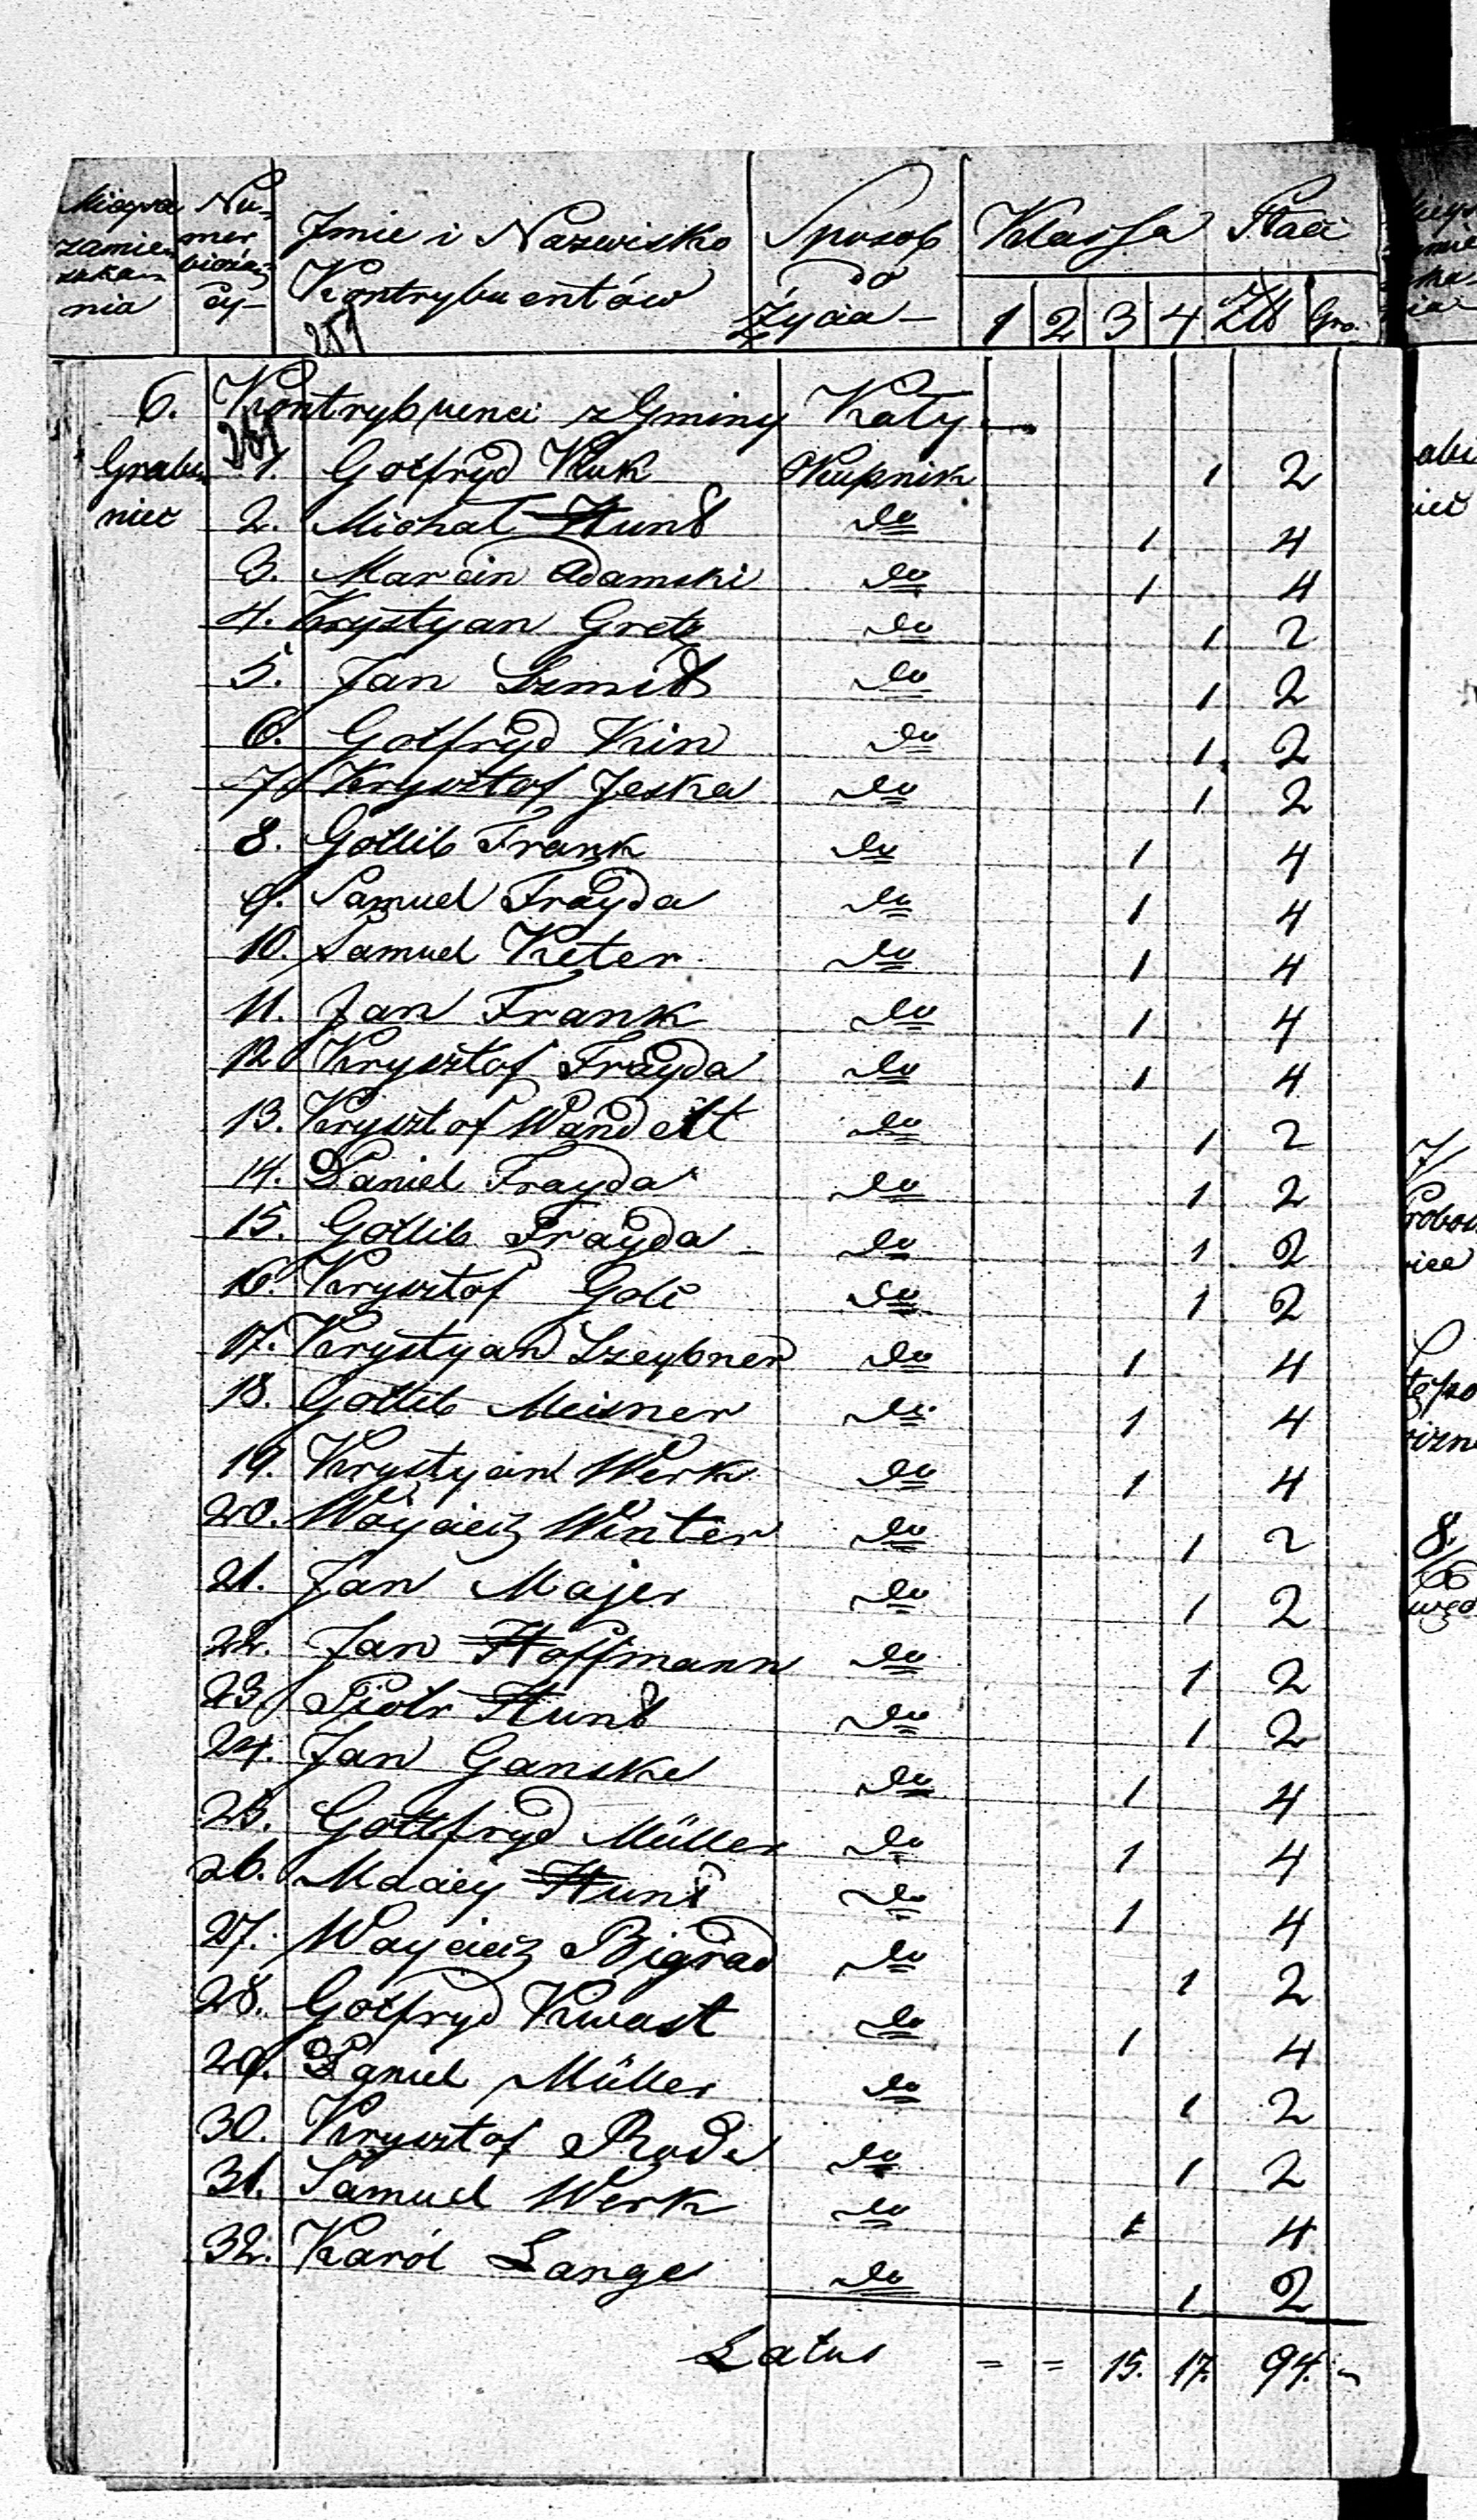 Miejsce zamieszkania Numer bieżący Jmie i Nazwisko Kontrybuentów Sposob do Życia Klassa 1 2 3 4 Płaci Złł Gro.
251
6. Kontrybuenci z Gminy Kąty
251
Grabieniec 1. Gotfryd Kluk Okupnik 1 2
2. Michał Hund do 1 4
3. Marcin Adamski do 1 4
4. Krystyan Gretz do 1 2
5. Jan Szmidt do 1 2
6. Gotfryd Kin do 1 2
7. Krysztof Jeska do 1 2
8. Gotlib Frank do 1 4
9. Samuel Frayda do 1 4
10. Samuel Keter do 1 4
11. Jan Frank do 1 4
12 Krysztof Frayda do 1 4
13. Krysztof Wandelt do 1 2
14. Daniel Frayda do 1 2
15. Gotlib Frayda do 1 2
16. Krysztof Golc do 1 2
17. Krystyan Szeybner do 1 4
18. Gotlib Meisner do 1 4
19. Krystyan Werk do 1 4
20. Woyciech Winter do 1 2
21. Jan Majer do 1 2
22. Jan Hoffmann do 1 2
23. Piotr Hund do 1 2
24. Jan Ganske do 1 4
25. Gottfryd Müller do 1 4
26. Maciey Hund do 1 4
27. Woyciech Bigrad do 1 2
28. Gotfryd Kwast do 1 4
29. Daniel Müller do 1 2
30. Krysztof Rode do 1 2
31. Samuel Werk do 1 4
32. Karol Lange do 1 2
Latus = = 15. 17. 94. -
7
8